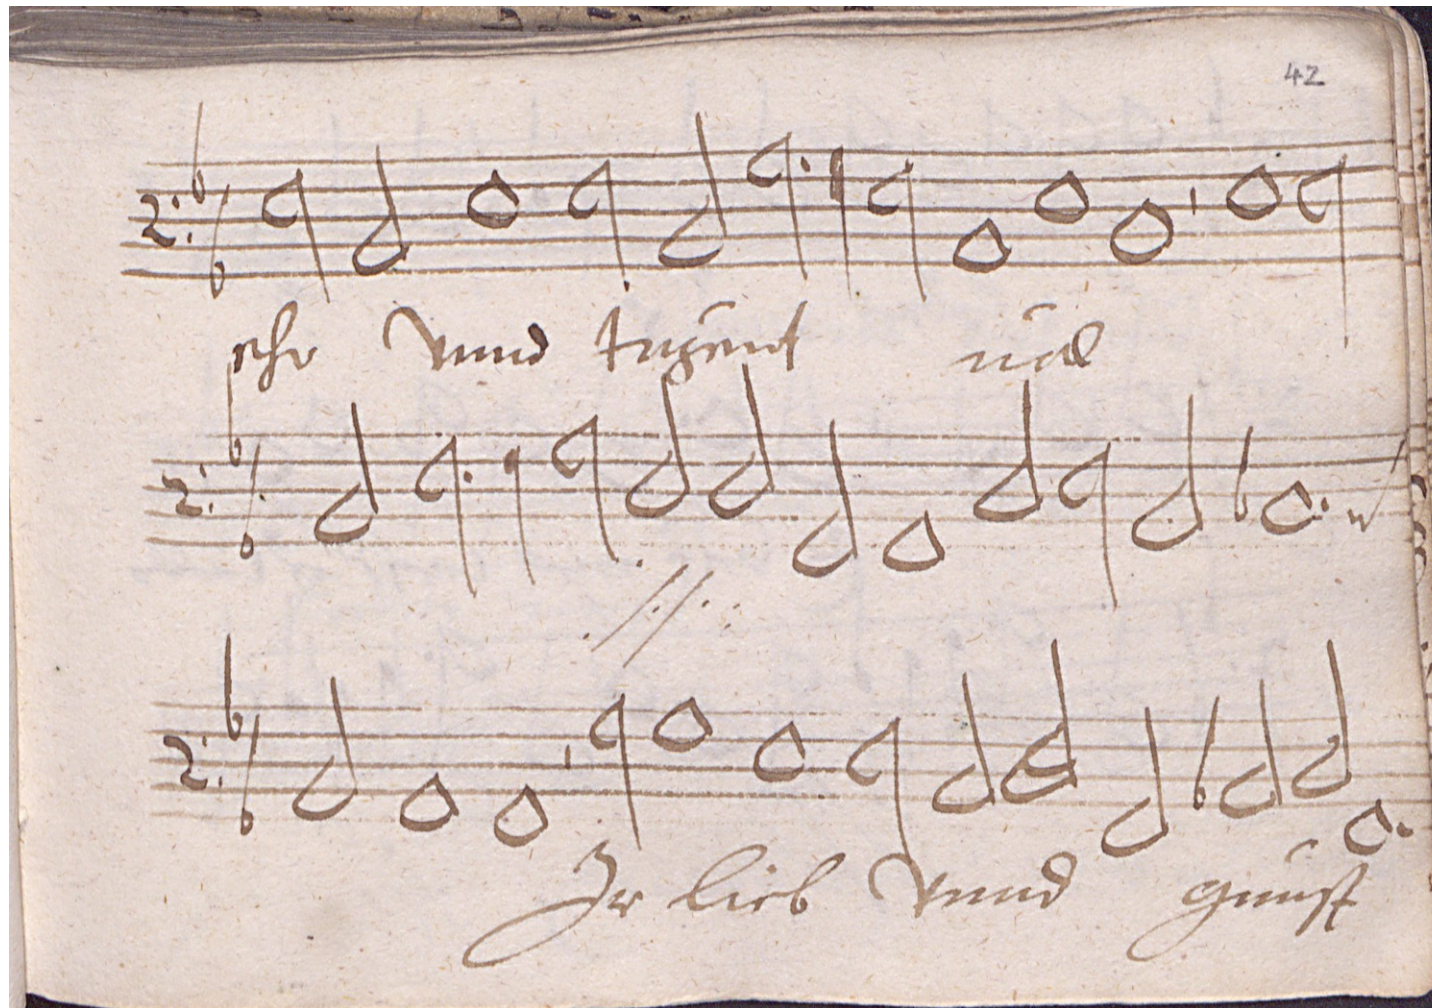 42
ehr vnnd tugent
Ir lieb vnnd gunst